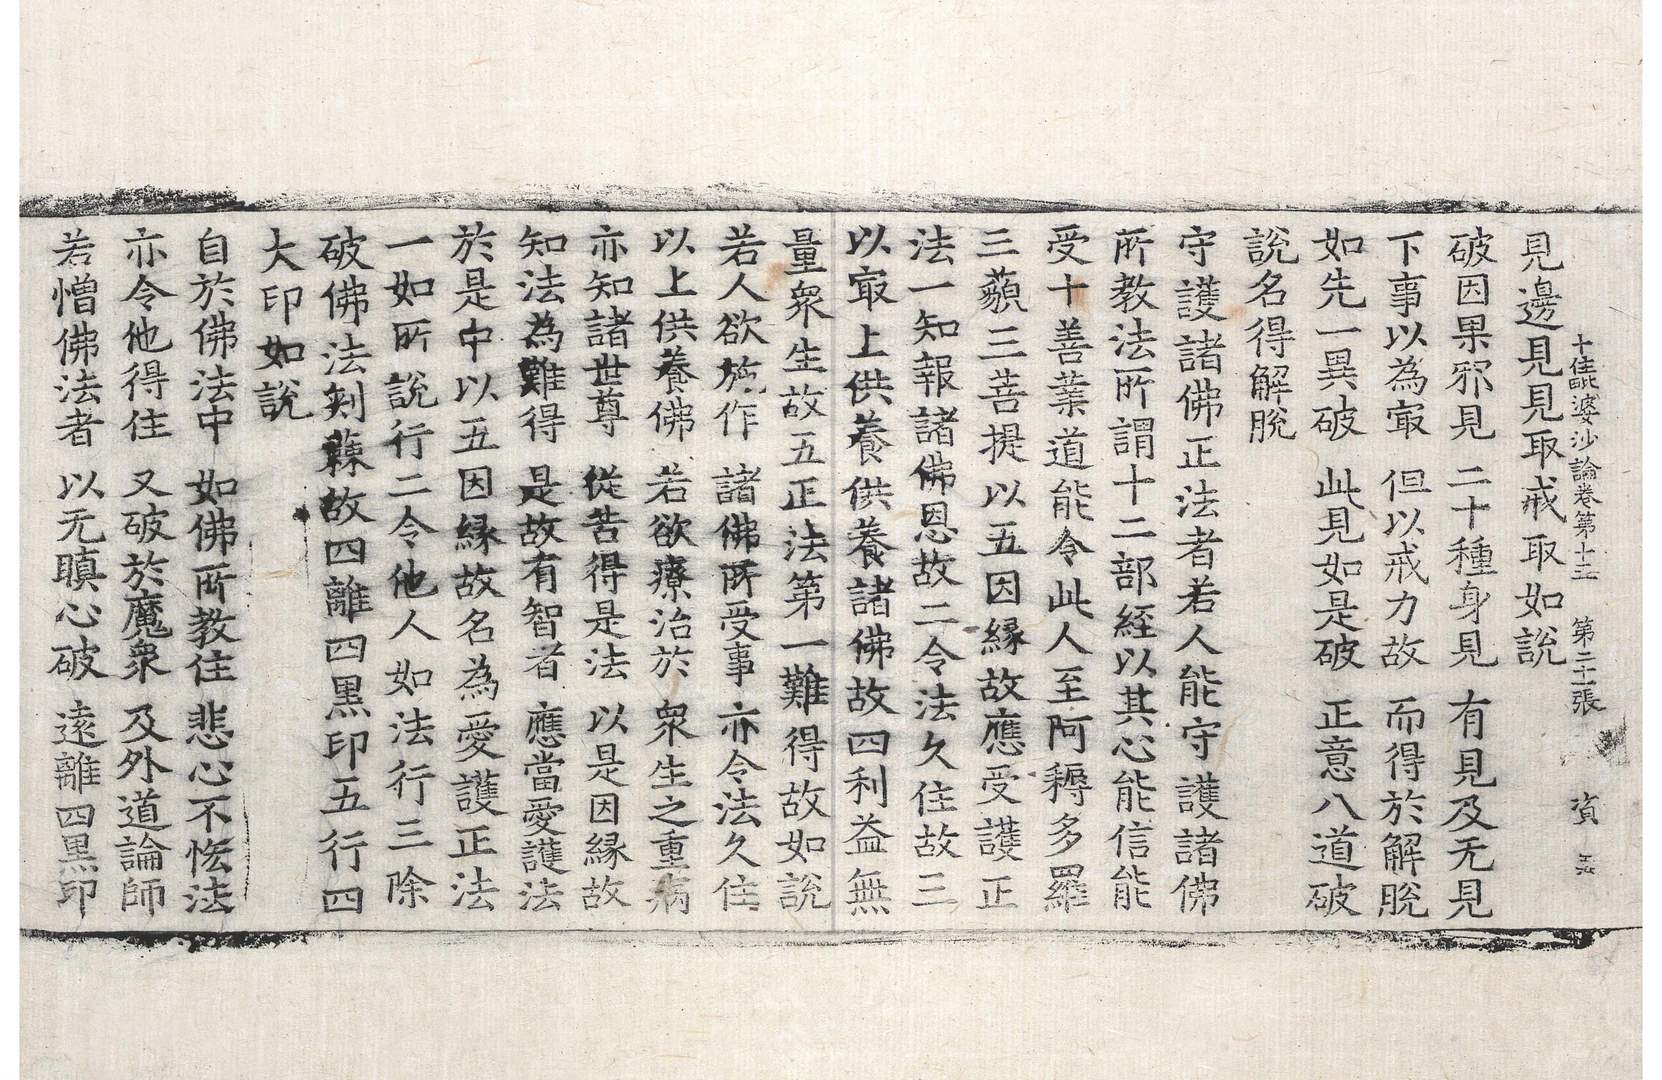 見邊見見取戒取如說
十住毗婆沙論卷第十三　第二十張　資　孟
破因果邪見　二十種身見　有見及无見
下事以為㝡　但以戒力故　而得於解脫
如先一異破　此見如是破　正意八道破
說名得解脫
守護諸佛正法者若人能守護諸佛
所教法所謂十二部經以其心能信能
受十善業道能令此人至阿耨多羅
三藐三菩提以五因緣故應受護正
法一知報諸佛恩故二令法久住故三
以㝡上供養供養諸佛故四利益無
量衆生故五正法第一難得故如說
若人欲施作　諸佛所受事　亦令法久住
以上供養佛　若欲療治於　衆生之重病
亦知諸世尊　從苦得是法　以是因緣故
知法為難得　是故有智者　應當愛護法
於是中以五因緣故名為愛護正法
一如所說行二令他人如法行三除
破佛法刺蕀故四離四黑印五行四
大印如說
自於佛法中　如佛所教住　悲心不恡法
亦令他得住　又破於魔衆　及外道論師
若憎佛法者　以无瞋心破　遠離四黑印